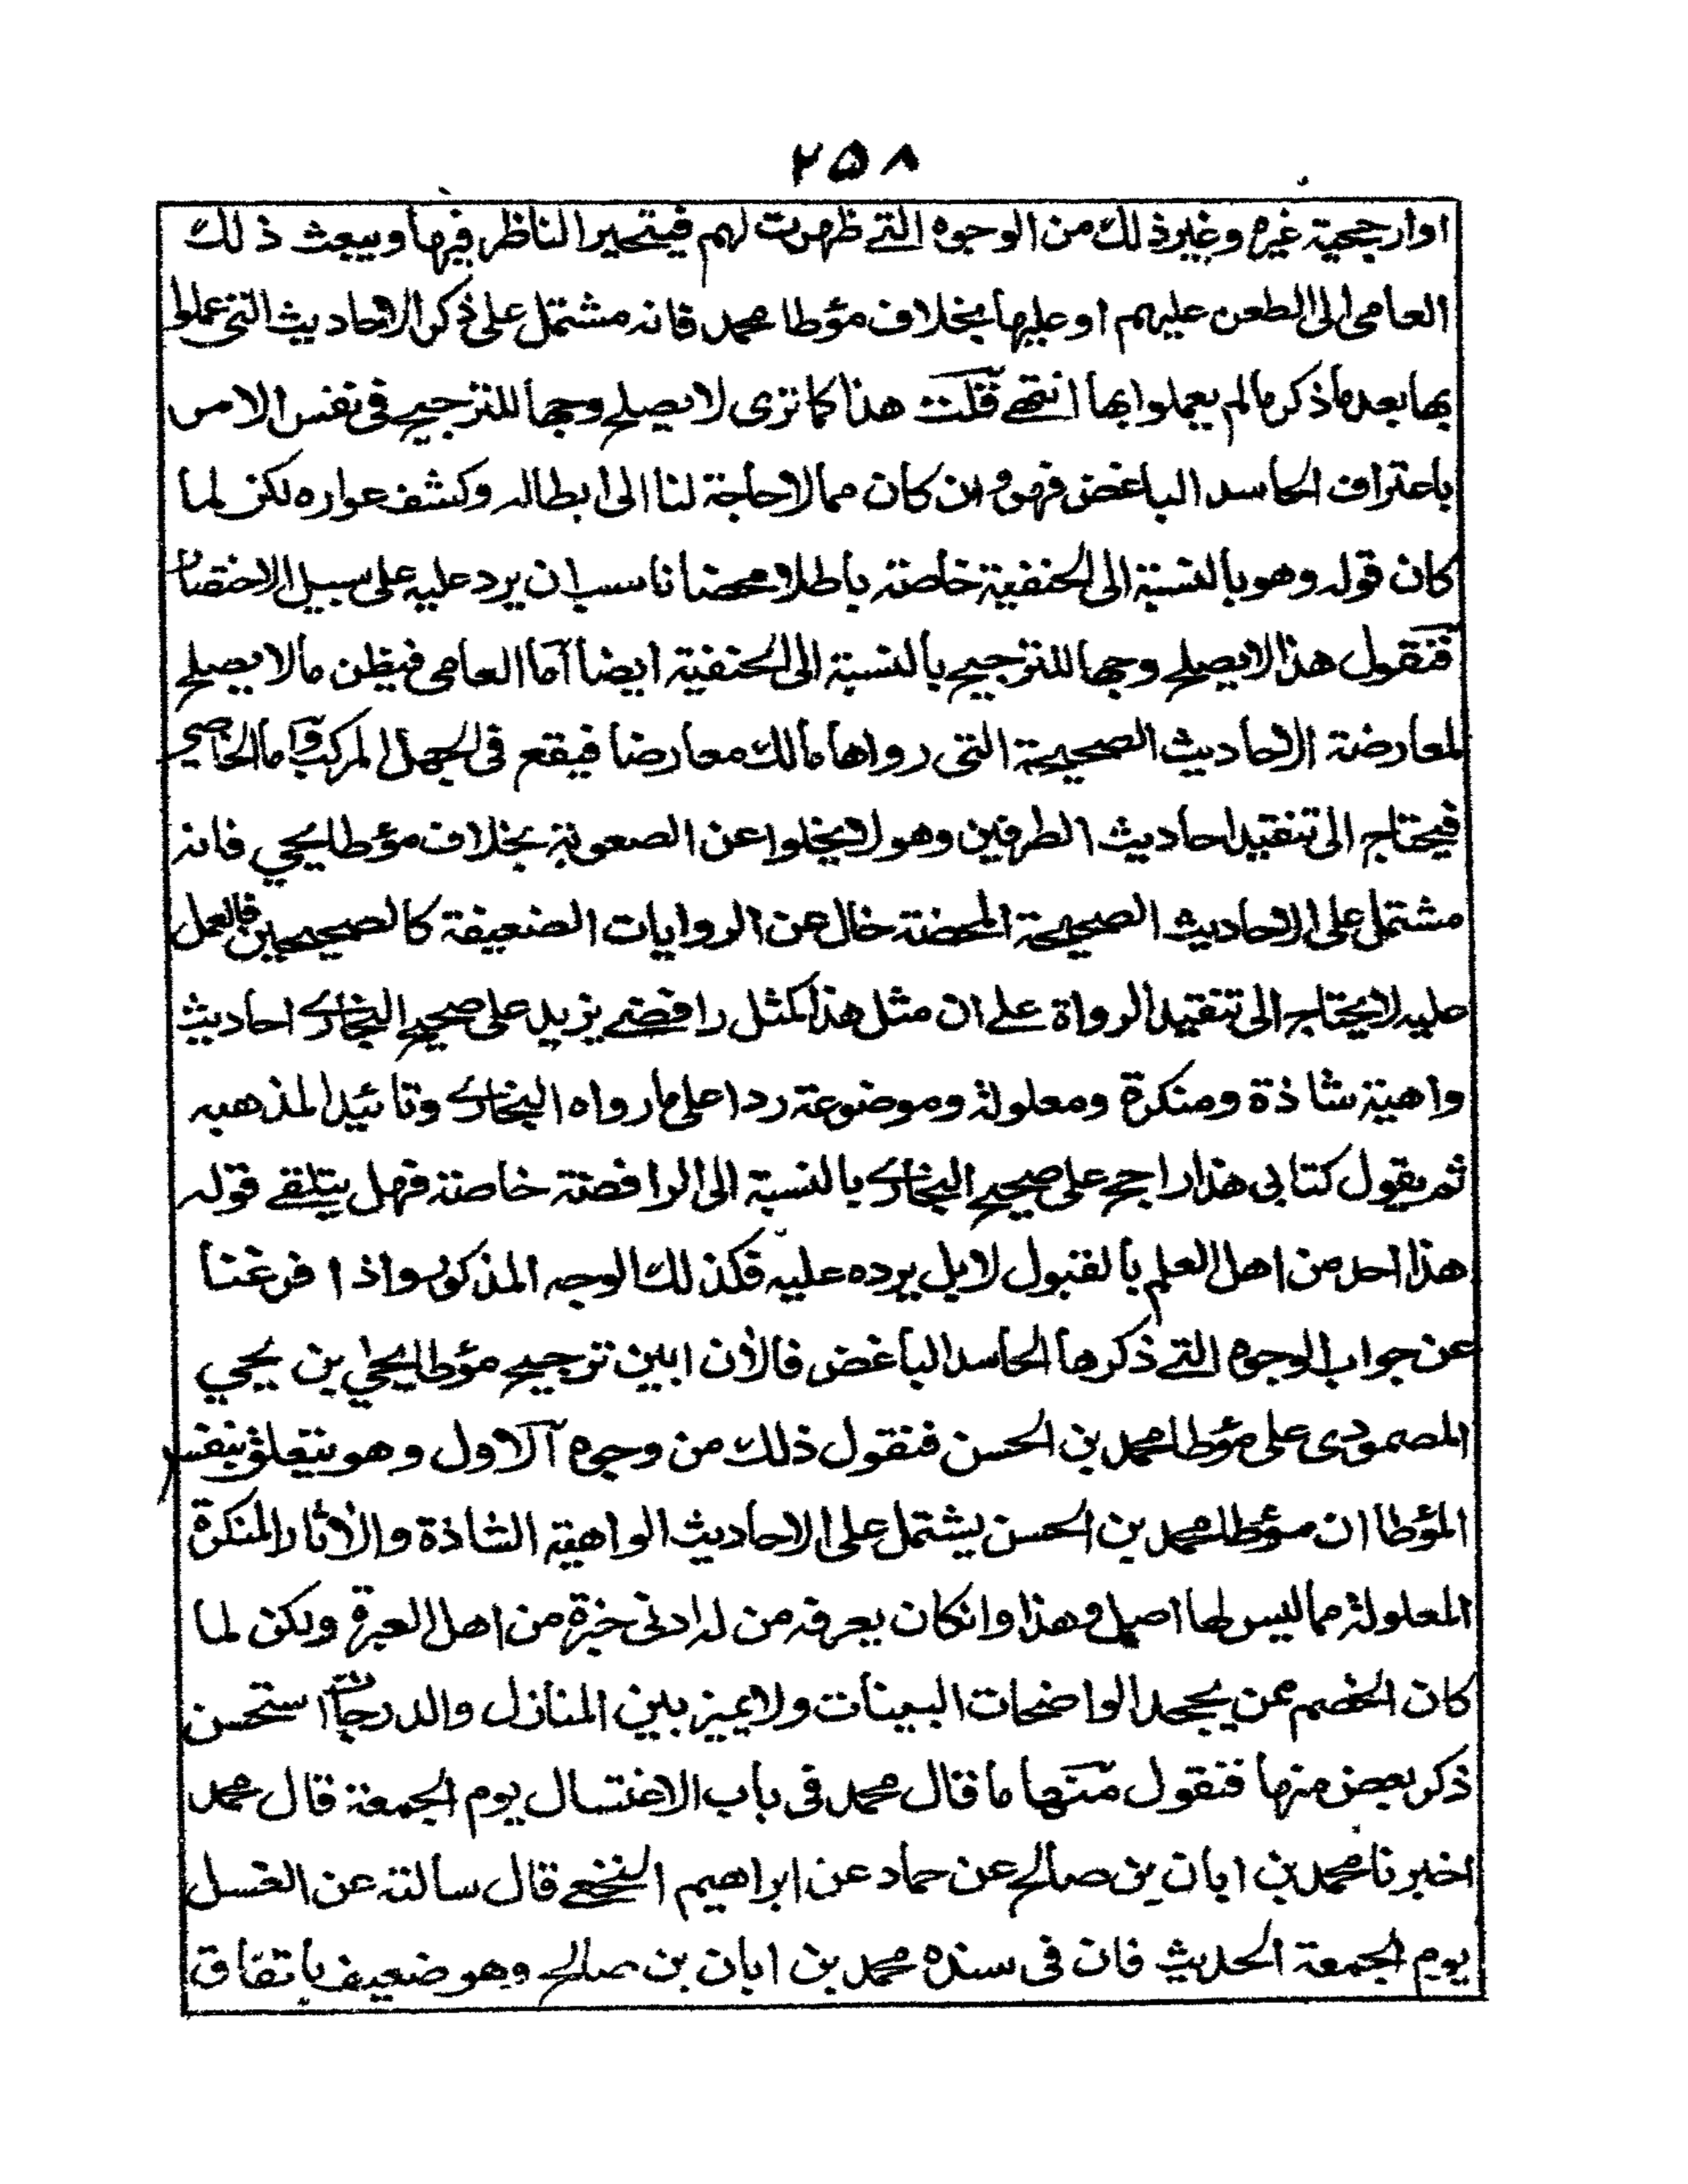 ٢٥٨
اوارجحية غيره وغيرذلك من الوجوه التے ظهرت لهم فيتحيرالناظر فيها ويبعث ذلك
العامى الى الطعن عليهم او عليها بخلاف مؤطا محمد فانه مشتمل على ذكر الاحاديث التى عملوا
بها بعد ما ذكر مالم يعملوا بها انتهے قلت هذا كما ترى لا يصلح وجها للترجيح فى نفس الامر
باعتراف الحاسد الباغض فهو وان كان مما لا حاجة لنا الى ابطاله وكشف عواره لكن لما
كان قوله وهو بالنسبة الى الحنفية خاصة باطلا محضا ناسب ان يرد عليه على سبيل الاختصار
فنقول هذا لا يصلح وجها للترجيح بالنسبة الى الحنفية ايضا اما العامى فيظن مالا يصلح
لمعارضة الاحاديث الصحيحة التى رواها مالك معارضا فيقع فى الجهل المركب واما الخاصى
فيحتاج الى تنقيد احاديث الطرفين وهو لا يخلوا عن الصعوبة بخلاف مؤطا يحيي فانه
مشتمل على الاحاديث الصحيحة المحضة خال عن الروايات الضعيفة كالصحيحين فالعمل
عليه لا يحتاج الى تنقيد الرواة علے ان مثل هذا كمثل رافضے يزيد على صحيح البخارے احاديث
واهية شاذة ومنكرة ومعلولة وموضوعة ردا على ما رواه البخارے وتائيدا لمذهبه
ثم يقول كتابى هذا راجح على صحيح البخارے بالنسبة الى الرافضة خاصة فهل يتلقے قوله
هذا احد من اهل العلم بالقبول لا بل يرده عليه فكذلك الوجه المذكور واذا فرغنا
عن جواب الوجوه التے ذكرها الحاسد الباغض فالأن ابين ترجيح مؤطا يحيٰ بن يحيي
المصمودى على مؤطا محمد بن الحسن فنقول ذلك من وجوه الاول وهو يتعلق بنفس
المؤطا ان مؤطا محمد بن الحسن يشتمل على الاحاديث الواهية الشاذة والأثار المنكرة
المعلولة مما ليس لها اصل وهذا وانكان يعرفه من له ادنى خبرة من اهل العبرة ولكن لما
كان الخصم ممن يجحد الواضحات البينات ولا يميز بين المنازل والدرجات استحسن
ذكر بعض منها فنقول منها ما قال محمد فى باب الاغتسال يوم الجمعة قال محمد
اخبرنا محمد بن ابان بن صالح عن حماد عن ابراهيم النخعے قال سالته عن الغسل
يوم الجمعة الحديث فان فى سنده محمد بن ابان بن صالح وهو ضعيف باتفاق